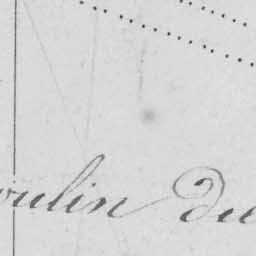 oulin du